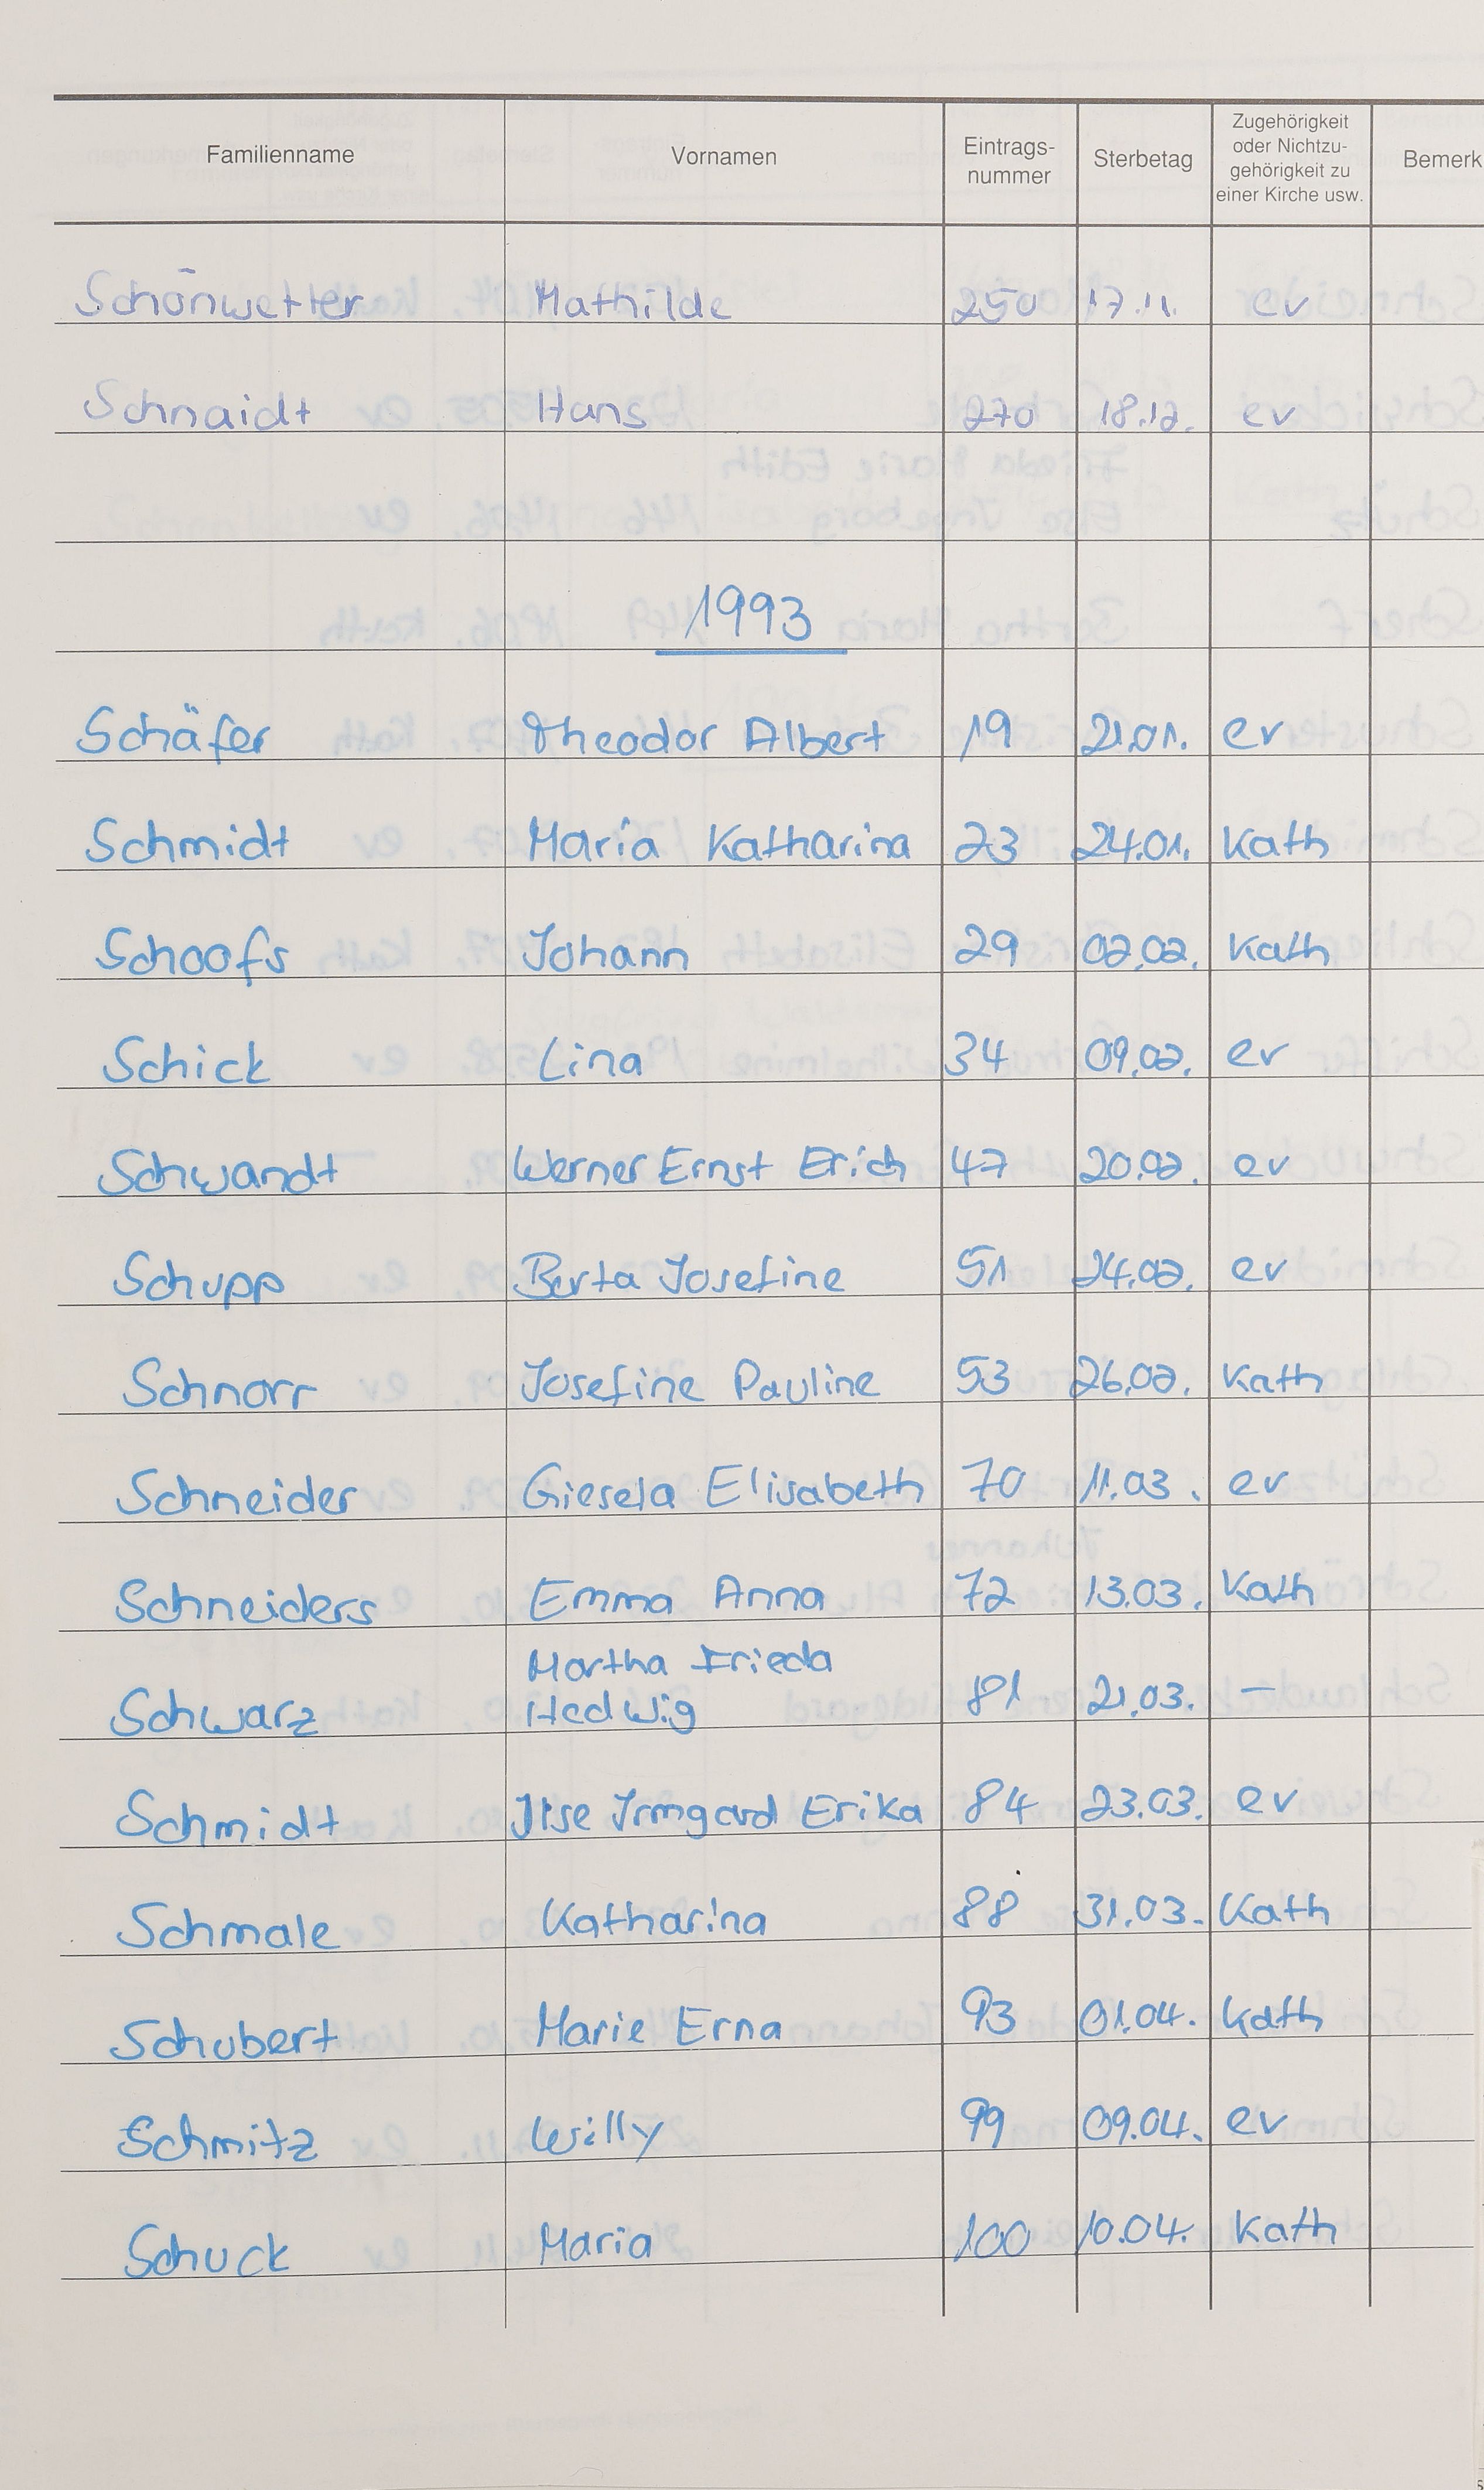 Familienname Vornamen Eintrags- nummer Sterbetag Zugehörigkeit oder Nichtzu- gehörigkeit zu einer Kirche usw. Bemerk
Schönwetter Mathilde 250 17.11. ev
Schnaidt Hans 270 18.12. ev
1993
Schäfer Theodor Albert 19 21.01. ev
Schmidt Maria Katharina 23 24.01. Kath
Schoofs Johann 29 02.02. Kath
Schick Lina 34 09.02. ev
Schwandt Werner Ernst Erich 47 20.02. ev
Schupp Berta Josefine 51 24.02. ev
Schnorr Josefine Pauline 53 26.02. Kath
Schneider Giesela Elisabeth 70 11.03. ev
Schneiders Emma Anna 72 13.03. Kath
Martha Frieda
Schwarz Hedwig 81 21.03. –
Schmidt Ilse Irmgard Erika 84 23.03. ev
Schmale Katharina 88 31.03. Kath
Schubert Marie Erna 93 01.04. Kath
Schmitz Willy 99 09.04. ev
Schuck Maria 100 10.04. Kath